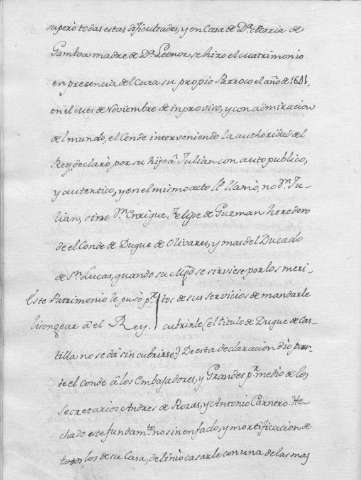 superò todas estas dificultades, y en Casa de D.ª Maria de
Gamboa madre de D.ª Leonor se hizo el matrimonio
en presencia del Cura su propio Parroco el año de 1641
en el mes de Noviembre de improviso, y con admiracion
del mundo, el Conde interveniendo la authoridad del
Rey declarò, por su hijo à Julian con auto publico,
y autentico, y en el mismo acto le llamò, no D.n Ju-
lian, sino D.n Enrique, Felipe de Guzman heredero
de el Conde de Duque de Olivares, y mas del Ducado
de S.n Lucar, quando su Mag.d se sirviese por los meri-
tos de sus servicios de mandarle
cubrirle (el titulo de Duque de Cas-
tilla no se dà sin cubrirse) De esta declaracion diò par-
te el conde à los Embajadores, y Grandes p.r medio de los
Secretarios Andres de Rozas, y Antonio Carnero. He-
chado este fundam.to no sin enfado, y mortificacion de
todos los de su Casa, delinio casarle con una de las mas
Este Patrimonio le puso p.r
lisongear à el Rey.